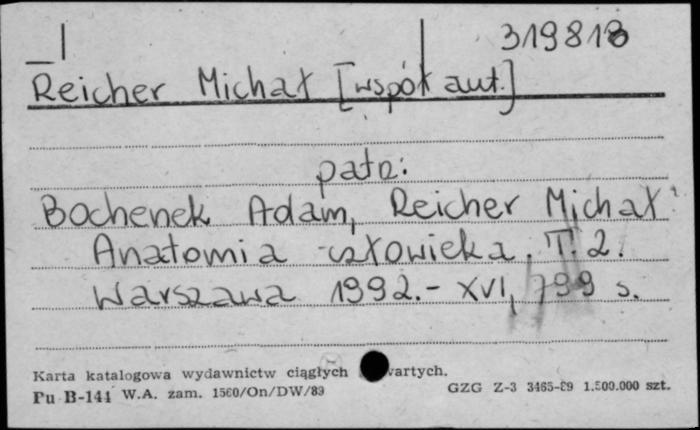 319818
Reicher Michał [współaut.]
patz:
Bochenek Adam, Reicher Michał:
Anatomia człowieka. T. 2.
Warszawa 1992.- XVI, 799 s.
Karta katalogowa wydawnictw ciągłych wartych.
Pu B-141 W.A. zam. 1560/On/DW/89 GZG Z-3 3465-89 1.500.000 szt.